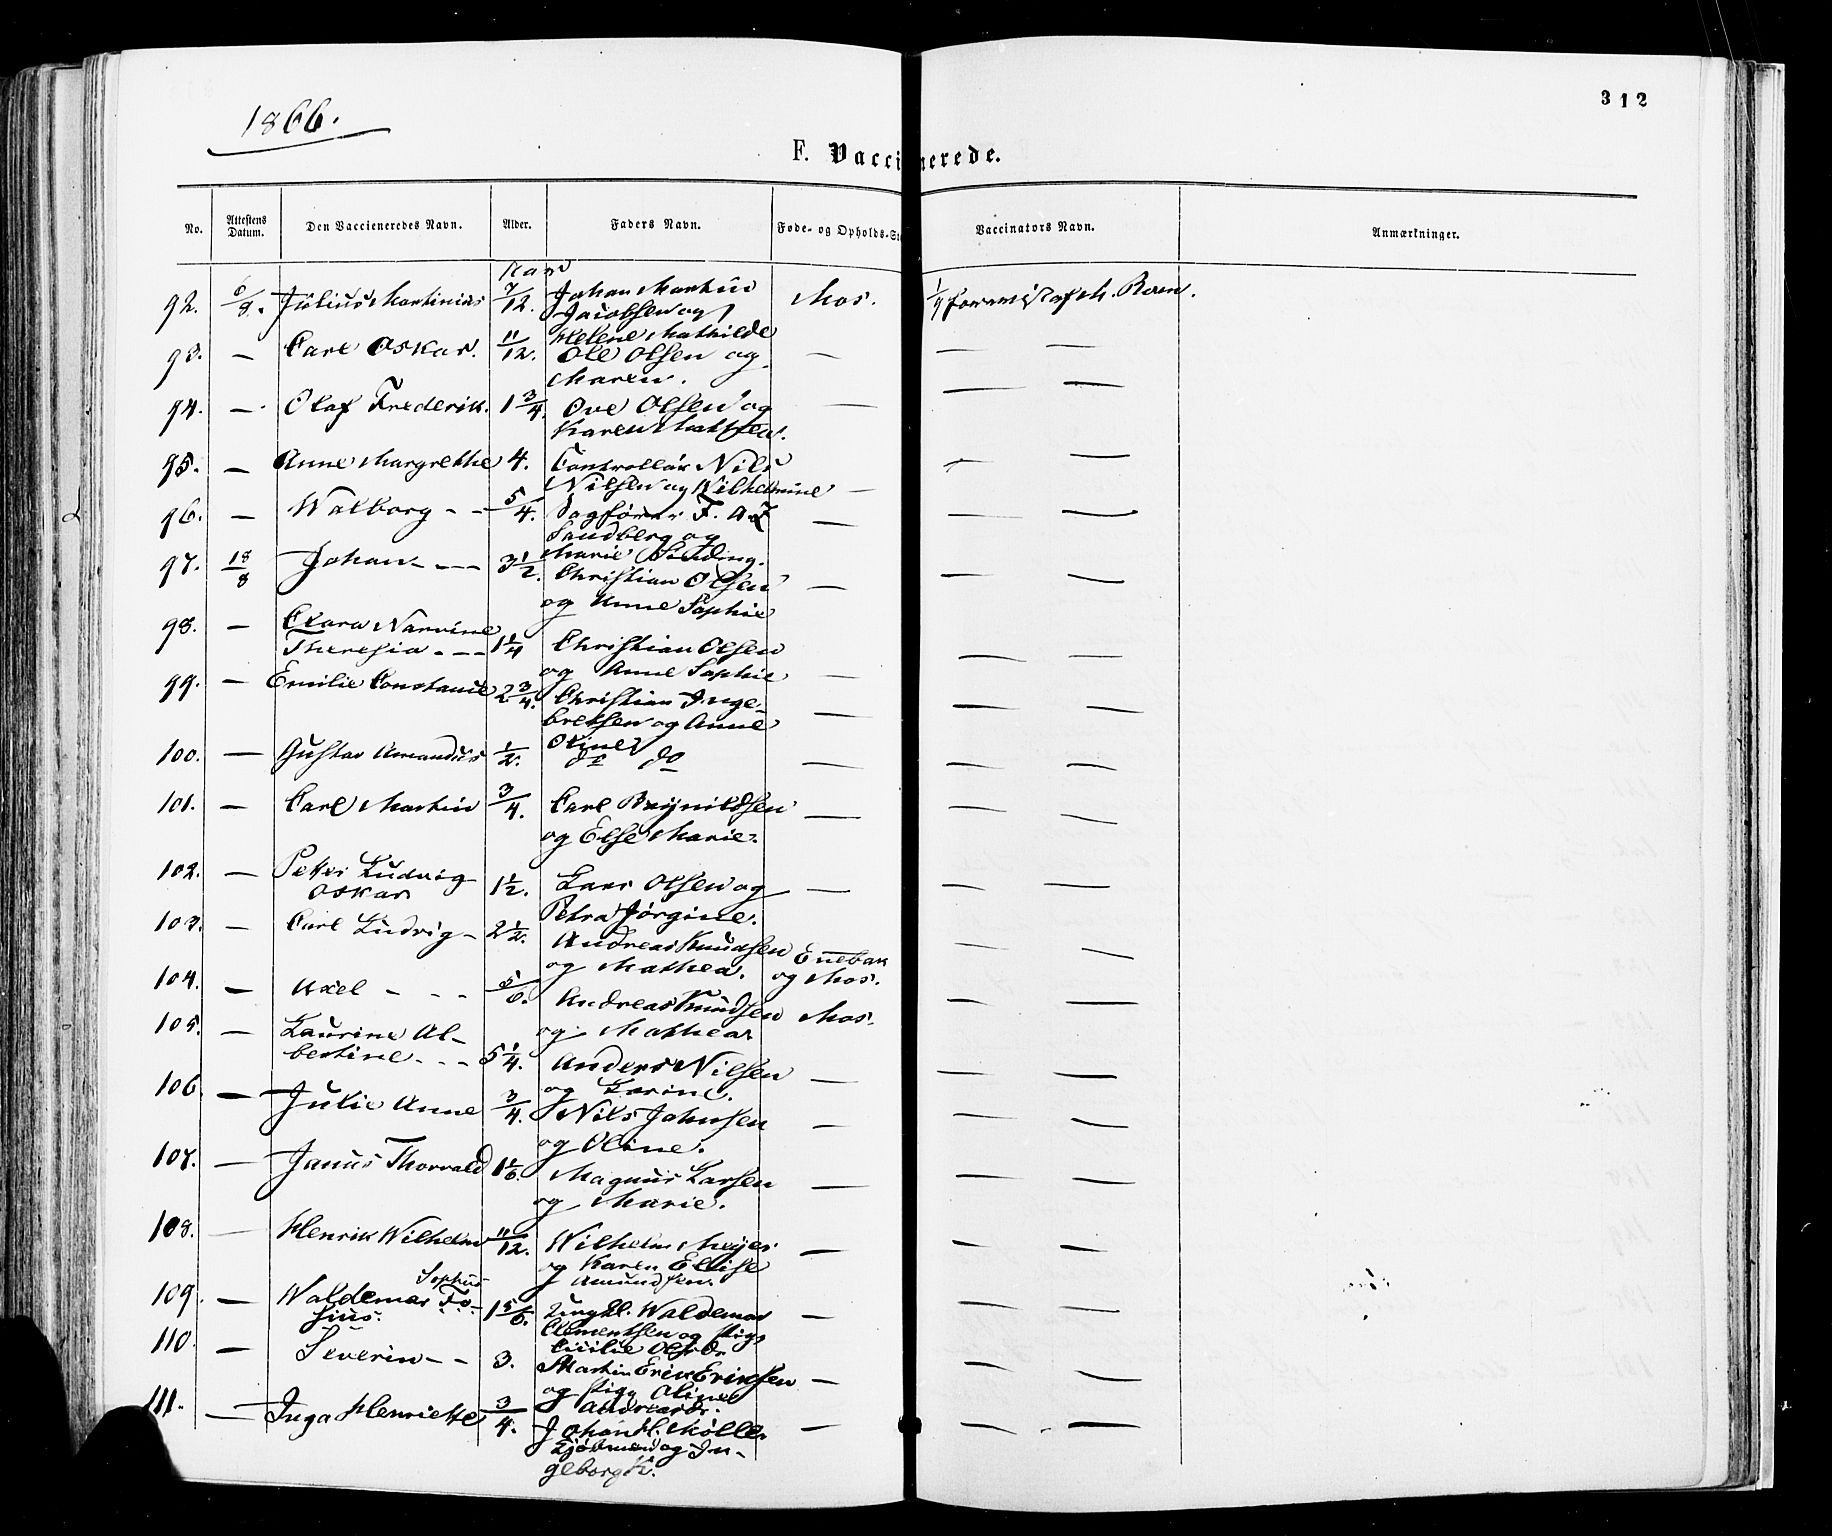 312
1866.
F. Vaccinerede.
No. Attestens Datum. Den Vaccieneredes Navn. Alder. Faders Navn. Føde- og Opholds-St Vaccinators Navn. Anmærkninger.
92. 6/8. Julius Martinius 7/12. Johan Martin Mos.
Jacobsen og
Helene Mathilde
93. — Carl Oskar. 11/12. Ole Olsen og — — —
Maren.
94. — Olaf Frederik. 1 3/4. Ove Olsen og — — —
Karen Mattsen.
95. — Anne Margrethe 4. Controllør Nils
Nilsen og Wilhelmine — — —
96. — Walborg - - 5/4. Sagfører F. A.
Sandberg og — — —
Marie Sinding.
97. 18/8 Johan - - - 3 1/2. Christian Olsen — — —
og Anne Sophie
98. — Clara Narvine
Theresia - - - 1 1/4 Christian Olsen
og Anne Sophie — — —
99. — Emilie Constance 2 3/4. Christian Inge-
bretsen og Anne — — —
Oline
100. — Gustav Amandus 1/2. do do — — —
101. — Carl Martin 3/4. Carl Brynildsen — — —
og Else Marie.
102. — Peter Ludvig
Oskar 1 1/2. Lars Olsen og — — —
Petra Jørgine.
103. — Carl Ludvig - 2 1/2. Andreas Knudsen Enebak — —
og Mathea. og Mos.
104. — Axel - - - 5/6. Andreas Knudsen Mos. — —
og Mathea
105. — Laurine Al-
bertine - - - 5 1/4. Anders Nilsen — — —
og Karine.
106. — Julie Anne 3/4. Nils Johnsen — — —
og Oline.
107. — Janus Thorvald 1 1/6. Magnus Larsen — — —
og Marie.
108. — Henrik Wilhelm 11/12. Wilhelm Meyer — — —
og Karen Elise
Amundsen.
109. — Waldemar Sophus Fo-
sius. 1 5/6. Ungkl. Waldemar — — —
Clementsen og Pige
Cicilie Olsdr.
110. — Severin - - 3. Martin Erik Eriksen — — —
og Pige Oline
Andreasdr.
111. — Inga Henriette 3/4. Johan H. Møller — — —
og In-
geborg K.